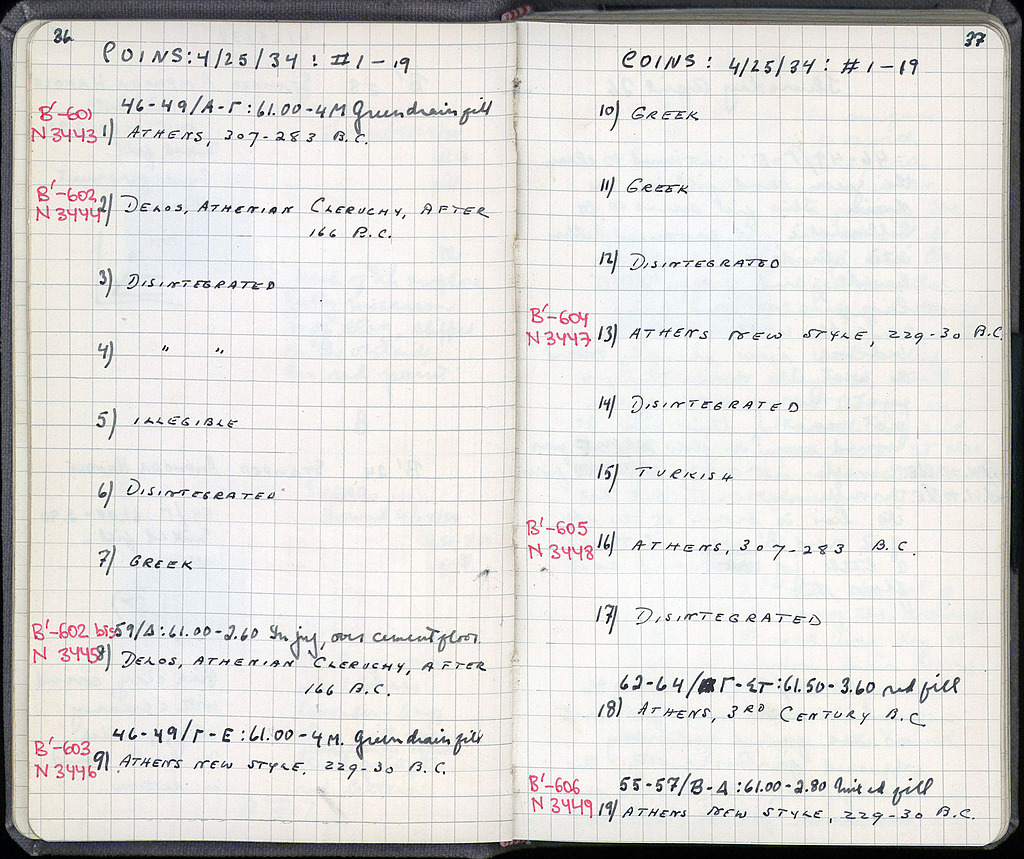 36
COINS: 4/25/34 : #1-19
46-49/A-Γ:61.00-4M Green drain fill
B'-601
N 3443 1) ATHENS, 307-283 B.C.
B'-602
N 3444 2) DELOS, ATHENIAN CLERUCHY, AFTER
166 B.C.
3) DISINTEGRATED
4) " "
5) ILLEGIBLE
6) DISINTEGRATED
7) GREEK
B'-602 bis 59/Δ:61.00-2.60 In jug, over cement floor
N 3445 8) DELOS, ATHENIAN CLERUCHY, AFTER
166 B.C.
46-49/Γ-E:61.00-4M. Green drain fill
B'-603
N 3446 9) ATHENS NEW STYLE, 229-30 B.C.
37
COINS: 4/25/34 : #1-19
10) GREEK
11) GREEK
12) DISINTEGRATED
B'-604
N 3447 13) ATHENS NEW STYLE, 229-30 B.C.
14) DISINTEGRATED
15) TURKISH
B'-605
N 3448 16) ATHENS, 307-283 B.C.
17) DISINTEGRATED
62-64/Γ-ΣT:61.50-3.60 red fill
18) ATHENS, 3RD CENTURY B.C.
B'-606 55-57/B-Δ:61.00-2.80 Mixed fill
N 3449 19) ATHENS NEW STYLE, 229-30 B.C.